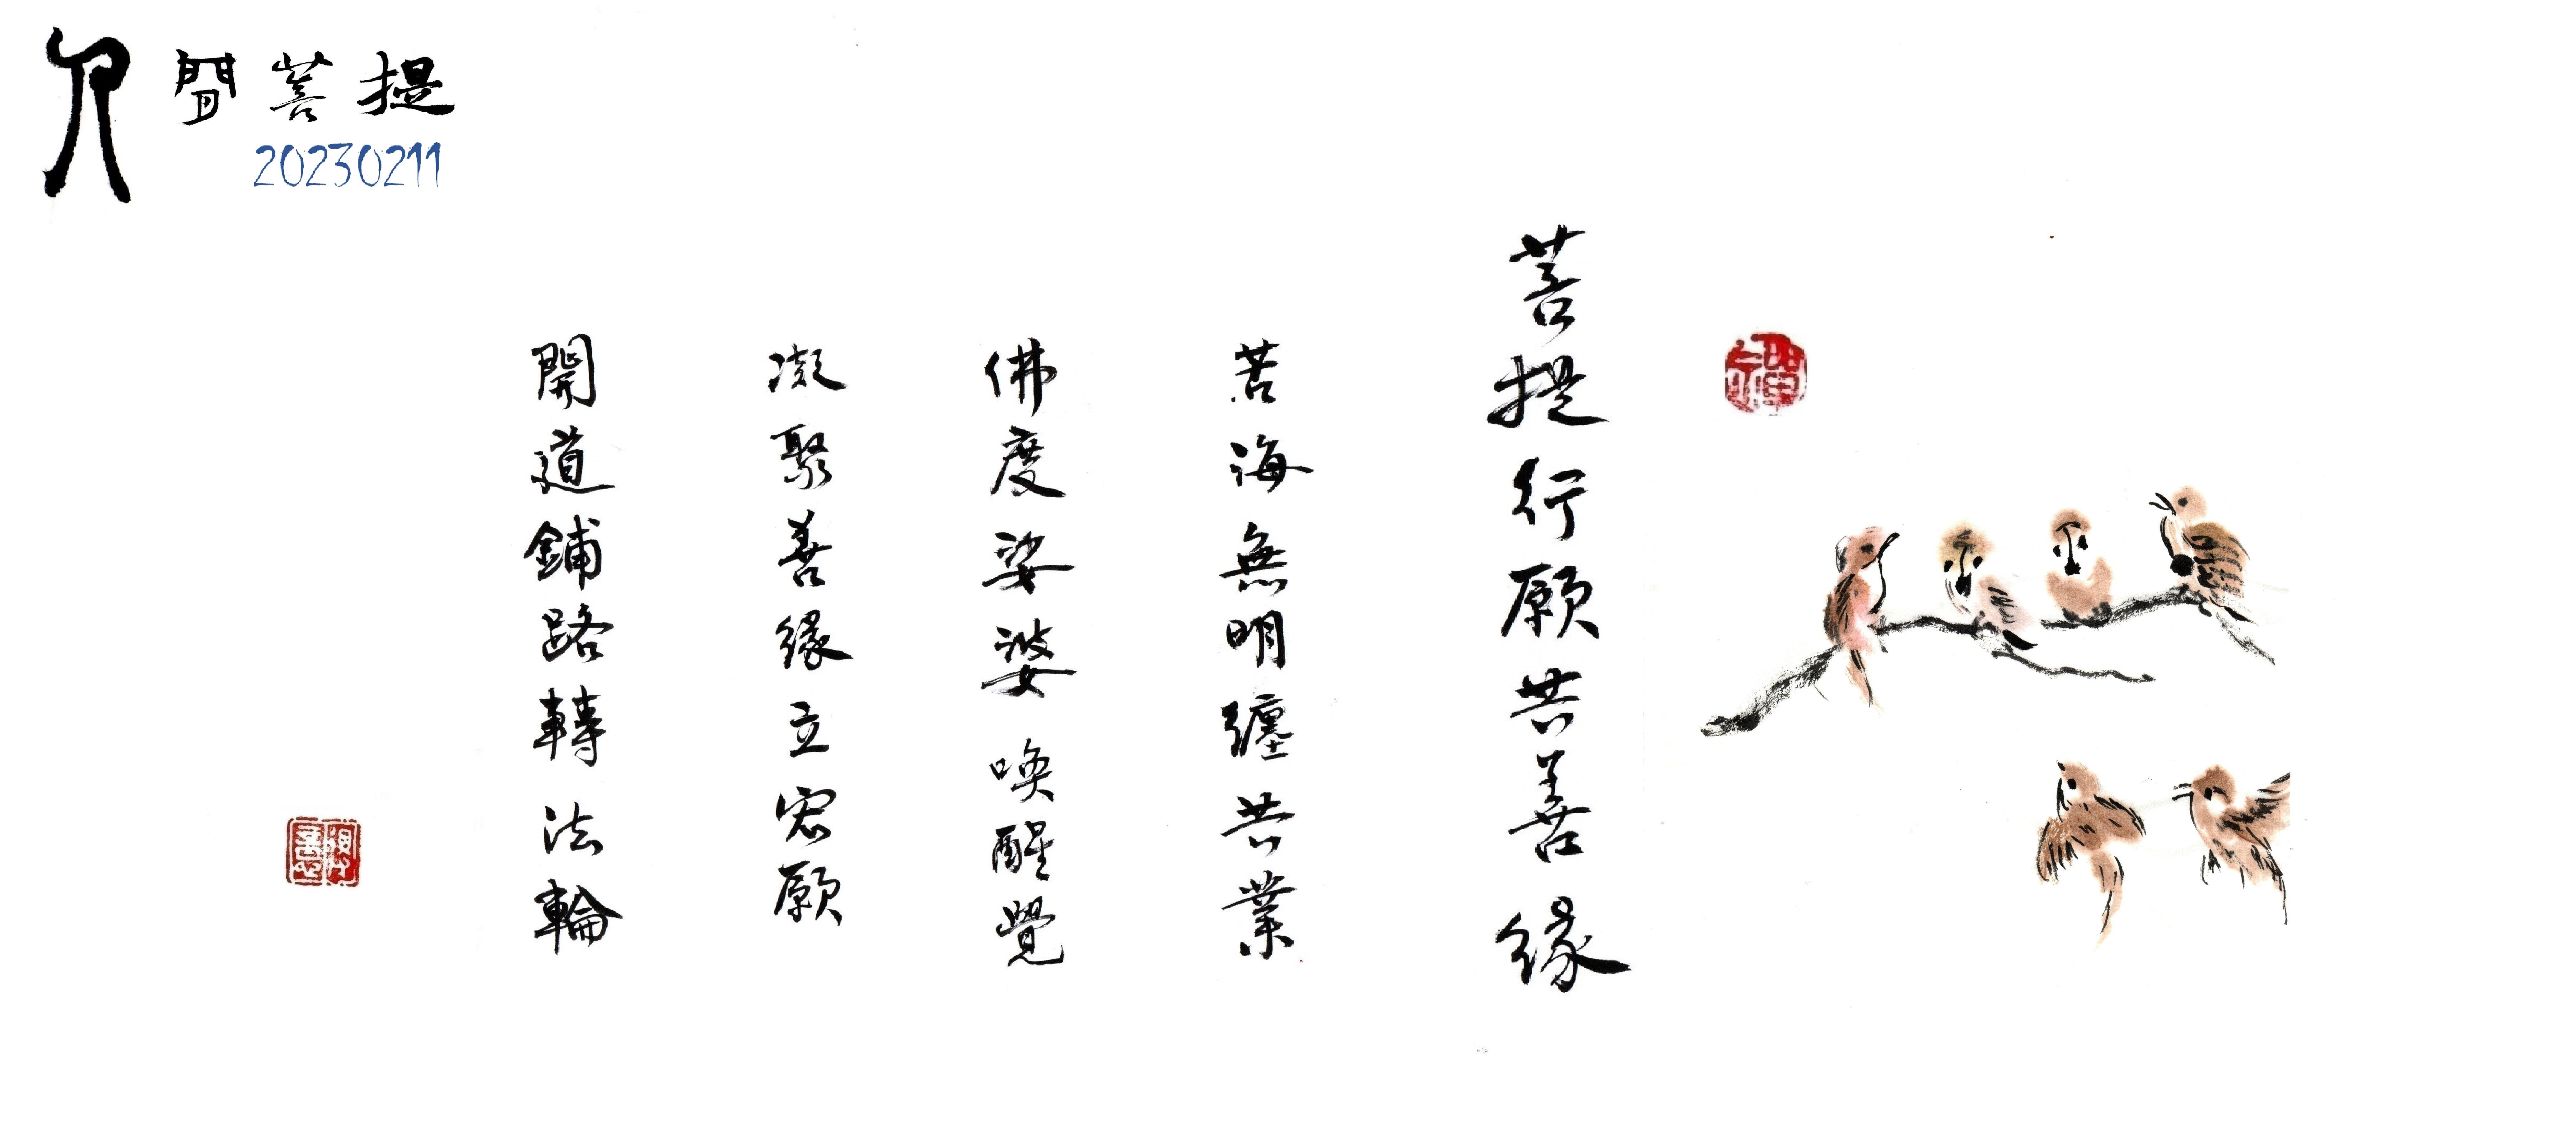 人間菩提
20230211
菩提行願共善緣
苦海無明纏共業
佛度娑婆喚醒覺
凝聚善緣立宏願
開道鋪路轉法輪